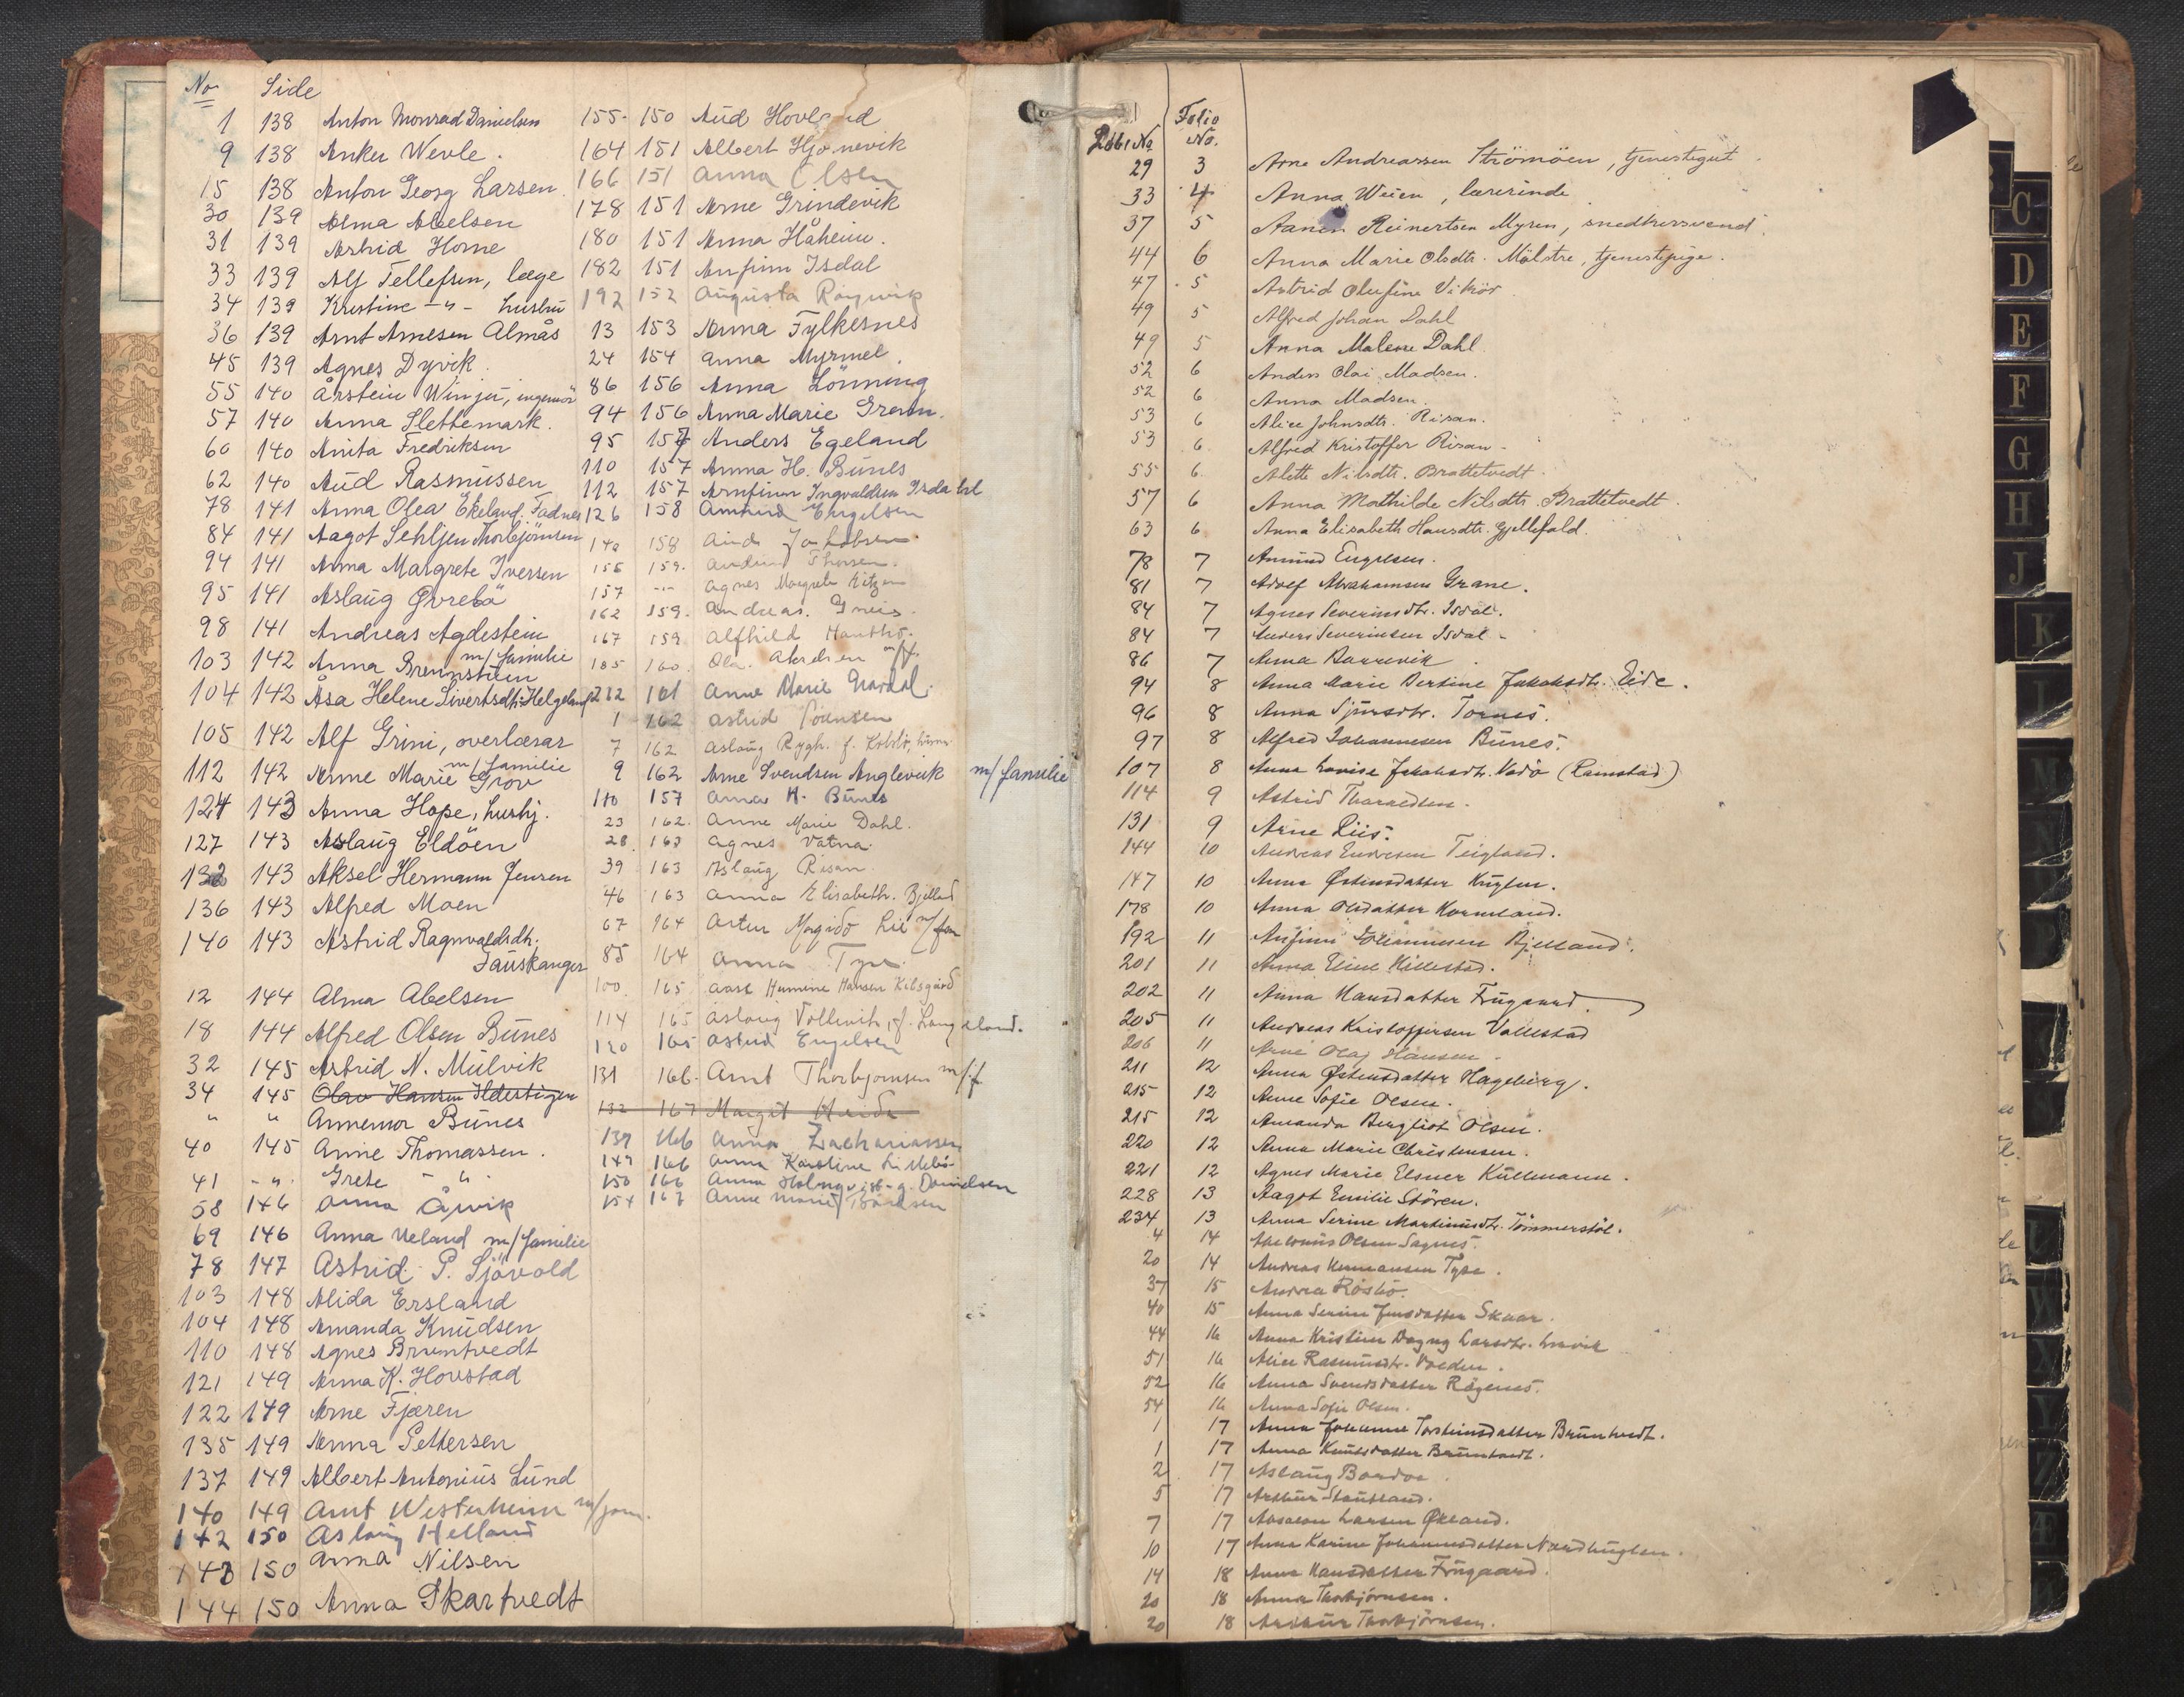 No Side
1 138 Anton Monrad Danielsen
9 138 Anker Wevle.
15 138 Anton Georg Larsen
30 139 Alma Abelsen
31 139 Astrid Horne
33 139 Alf Tellefsen, læge
34 139 Kristine -"- hustru
36 139 Arnt Arnesen Almås
45 139 Agnes Dyvik
55 140 Årstein Winju, ingeniör
57 140 Anna Slettemark.
60 140 Anita Fredriksen
62 140 Aud Rasmussen
78 141 Anna Olea Ekeland. Fadnes
84 141 Aagot Sehljen Thorbjörnsen
94 141 Anna Margrete Iversen
95 141 Aslaug Øvrebö
98 141 Andreas Agdestein
103 142 Anna Brennsteen m/familie
104 142 Åsa Helene Sivertsdtr. Helgeland
105 142 Alf Grini, overlærar
112 142 Anne Marie Grov m/familie
124 143 Anna Hope, hushj.
127 143 Aslaug Eldöen
132 143 Aksel Hermann Jensen
136 143 Alfred Moen
140 143 Astrid Ragnvaldsdtr.
Fauskanger
12 144 Alma Abelsen
18 144 Alfred Olsen Bunes
32 145 Astrid N. Mulvik
34 145 Olav Hansen
" " Annemor Bunes
40 145 Anne Thomassen.
41 -"- Grete -"-
58 146 Anna Åsvik
69 146 Anna Ueland m/familie
78 147 Astrid P. Sjövold
103 148 Alida Ersland
104 148 Amanda Knudsen
110 148 Agnes Bruntvedt
121 149 Anna K. Hovstad
122 149 Arne Fjæren
135 149 Anna Pettersen
137 149 Albert Antonius Lund
140 149 Arnt Westerheim m/fam.
142 150 Aslaug Helland
143 150 Anna Nilsen
144 150 Anna Skartvedt
155 150 Aud Hovland
164 151 Albert Hjönevik
166 151 Anna Olsen
178 151 Arne Grindevik
180 151 Anna Håheim.
182 151 Anfinn Isdal
192 152 Augusta
13 153 Anna Fylkesnes
24 154 Anna Myrmel.
86 156 Anna Lönning
94 156 Anna Marie Grønn.
95 157 Anders Egeland
110 157 Anna H. Bunes
112 157 Arnfinn Ingvaldsen Isdahl
126 158 Amund Engelsen
140 158 Aud Jakobsen
155 159. Thorsen.
157 -"- Agnes Margrete
162 159. Andreas.
167 159 Alfhild
185 160. Ola. m/f.
212 161 Anne Marie
1 162 Astrid Sörensen
7 162 Aslaug Rygh. f.
9 162 Arne Svendsen Anglevik m/familie
110 157 Anna H. Bunes
23 162. Anne Marie Dahl.
28. 163 Agnes Vatna.
39 163 Aslaug Risan
46 163 Anna Elisabeth. Bjelland
67 164 Artur Lie m/fam
85 164 Anna Tyse.
100. 165 Aase Hermine Hansen
114 165 Aslaug Vollevik, f. Langeland.
120 165 Astrid Engelsen
131 166. Arnt Thorbjørnsen m/f
132 167 Margit
139 166 Anna Zachariassen
149 166 Anna Karstine
150 166 Anna Danielsen
154 167 Anne Marie Bårdsen
Löbe No Folio No.
29 3 Arne Andreassen Strömöen, tjenestegut
33 4 Anna Weien, lærerinde
37 5 Aanen Reinertsen Myren, snedkersvend
44 6 Anna Marie Olsdtr. Mölstre, tjenestepige.
47 5 Astrid Olufine Vikör
49 5 Alfred Johan Dahl
49 5 Anna Malene Dahl
52 6 Anders Olai Madsen.
52 6 Anna Madsen.
53 6 Alice Johnsdtr. Risan.
53 6 Alfred Kristoffer Risan
55 6 Alette Nilsdtr. Brattetvedt
57 6 Anna Mathilde Nilsdtr. Brattetvedt.
63 6 Anna Elisabeth Hansdtr. Gjellefald.
78 7 Amund Engelsen.
81 7 Adolf Abrahamsen Grane.
84 7 Agnes Severinsdtr. Isdal.
84 7 Anders Severinsen Isdal
86 7 Anna
94 8 Anna Marie Bertine Jakobsdtr. Eide.
96 8 Anna Sjursdtr. Tornes.
97 8 Alfred Johannesen Bunes.
107 8 Anna Lovise Jakobsdtr. Vadö (Ramstad)
114 9 Astrid Tharaldsen.
131 9 Arne Riis.
144 10 Andreas Endresen Teigland.
147 10 Anna Østensdatter Huglen.
178 10 Anna Olsdatter Korneland.
192 11 Anfinn Johannesen Bjelland.
201 11 Anna Eline Killestad.
202 11 Anna Hansdatter Frugaard
205 11 Andreas Kristoffersen Vallestad
206 11 Arne Olaf Hansen
211 12 Anna Østensdatter Hageberg.
215 12 Anne Sofie Olsen.
215 12 Amanda Bergliot Olsen.
220 12 Anna Marie Christensen.
221 12 Agnes Marie Elsner Kullmann.
228 13 Aagot Emilie Stören.
234 13 Anna Serine Martinusdtr. Tömmerstöl.
4 14 Olsen Sagnes.
20 14 Andreas Hermansen Tyse.
37 15 Andrea
40 15 Anna Serine Jensdatter Skaar.
44 16 Anna Kristine Dagny Larsdtr.
51 16 Alice Rasmusdtr.
52 16 Anna Svendsdatter Rögenes.
54 16 Anna Sofie Olsen.
1 17 Anna Johanne Torsteinsdatter Bruntvedt.
1 17 Anna Knutsdatter Bruntvedt.
2 17 Aslaug
5 17 Arthur Stautland.
7 17 Absalon Larsen Økland.
10 17 Anna Karine Johannesdatter Nordhuglen.
14 18 Anna Hansdatter Frugaard.
20 18 Anna Thorbjörnsen.
20 18 Arthur Thorbjörnsen.
C
D
E
F
G
H
J
K
L